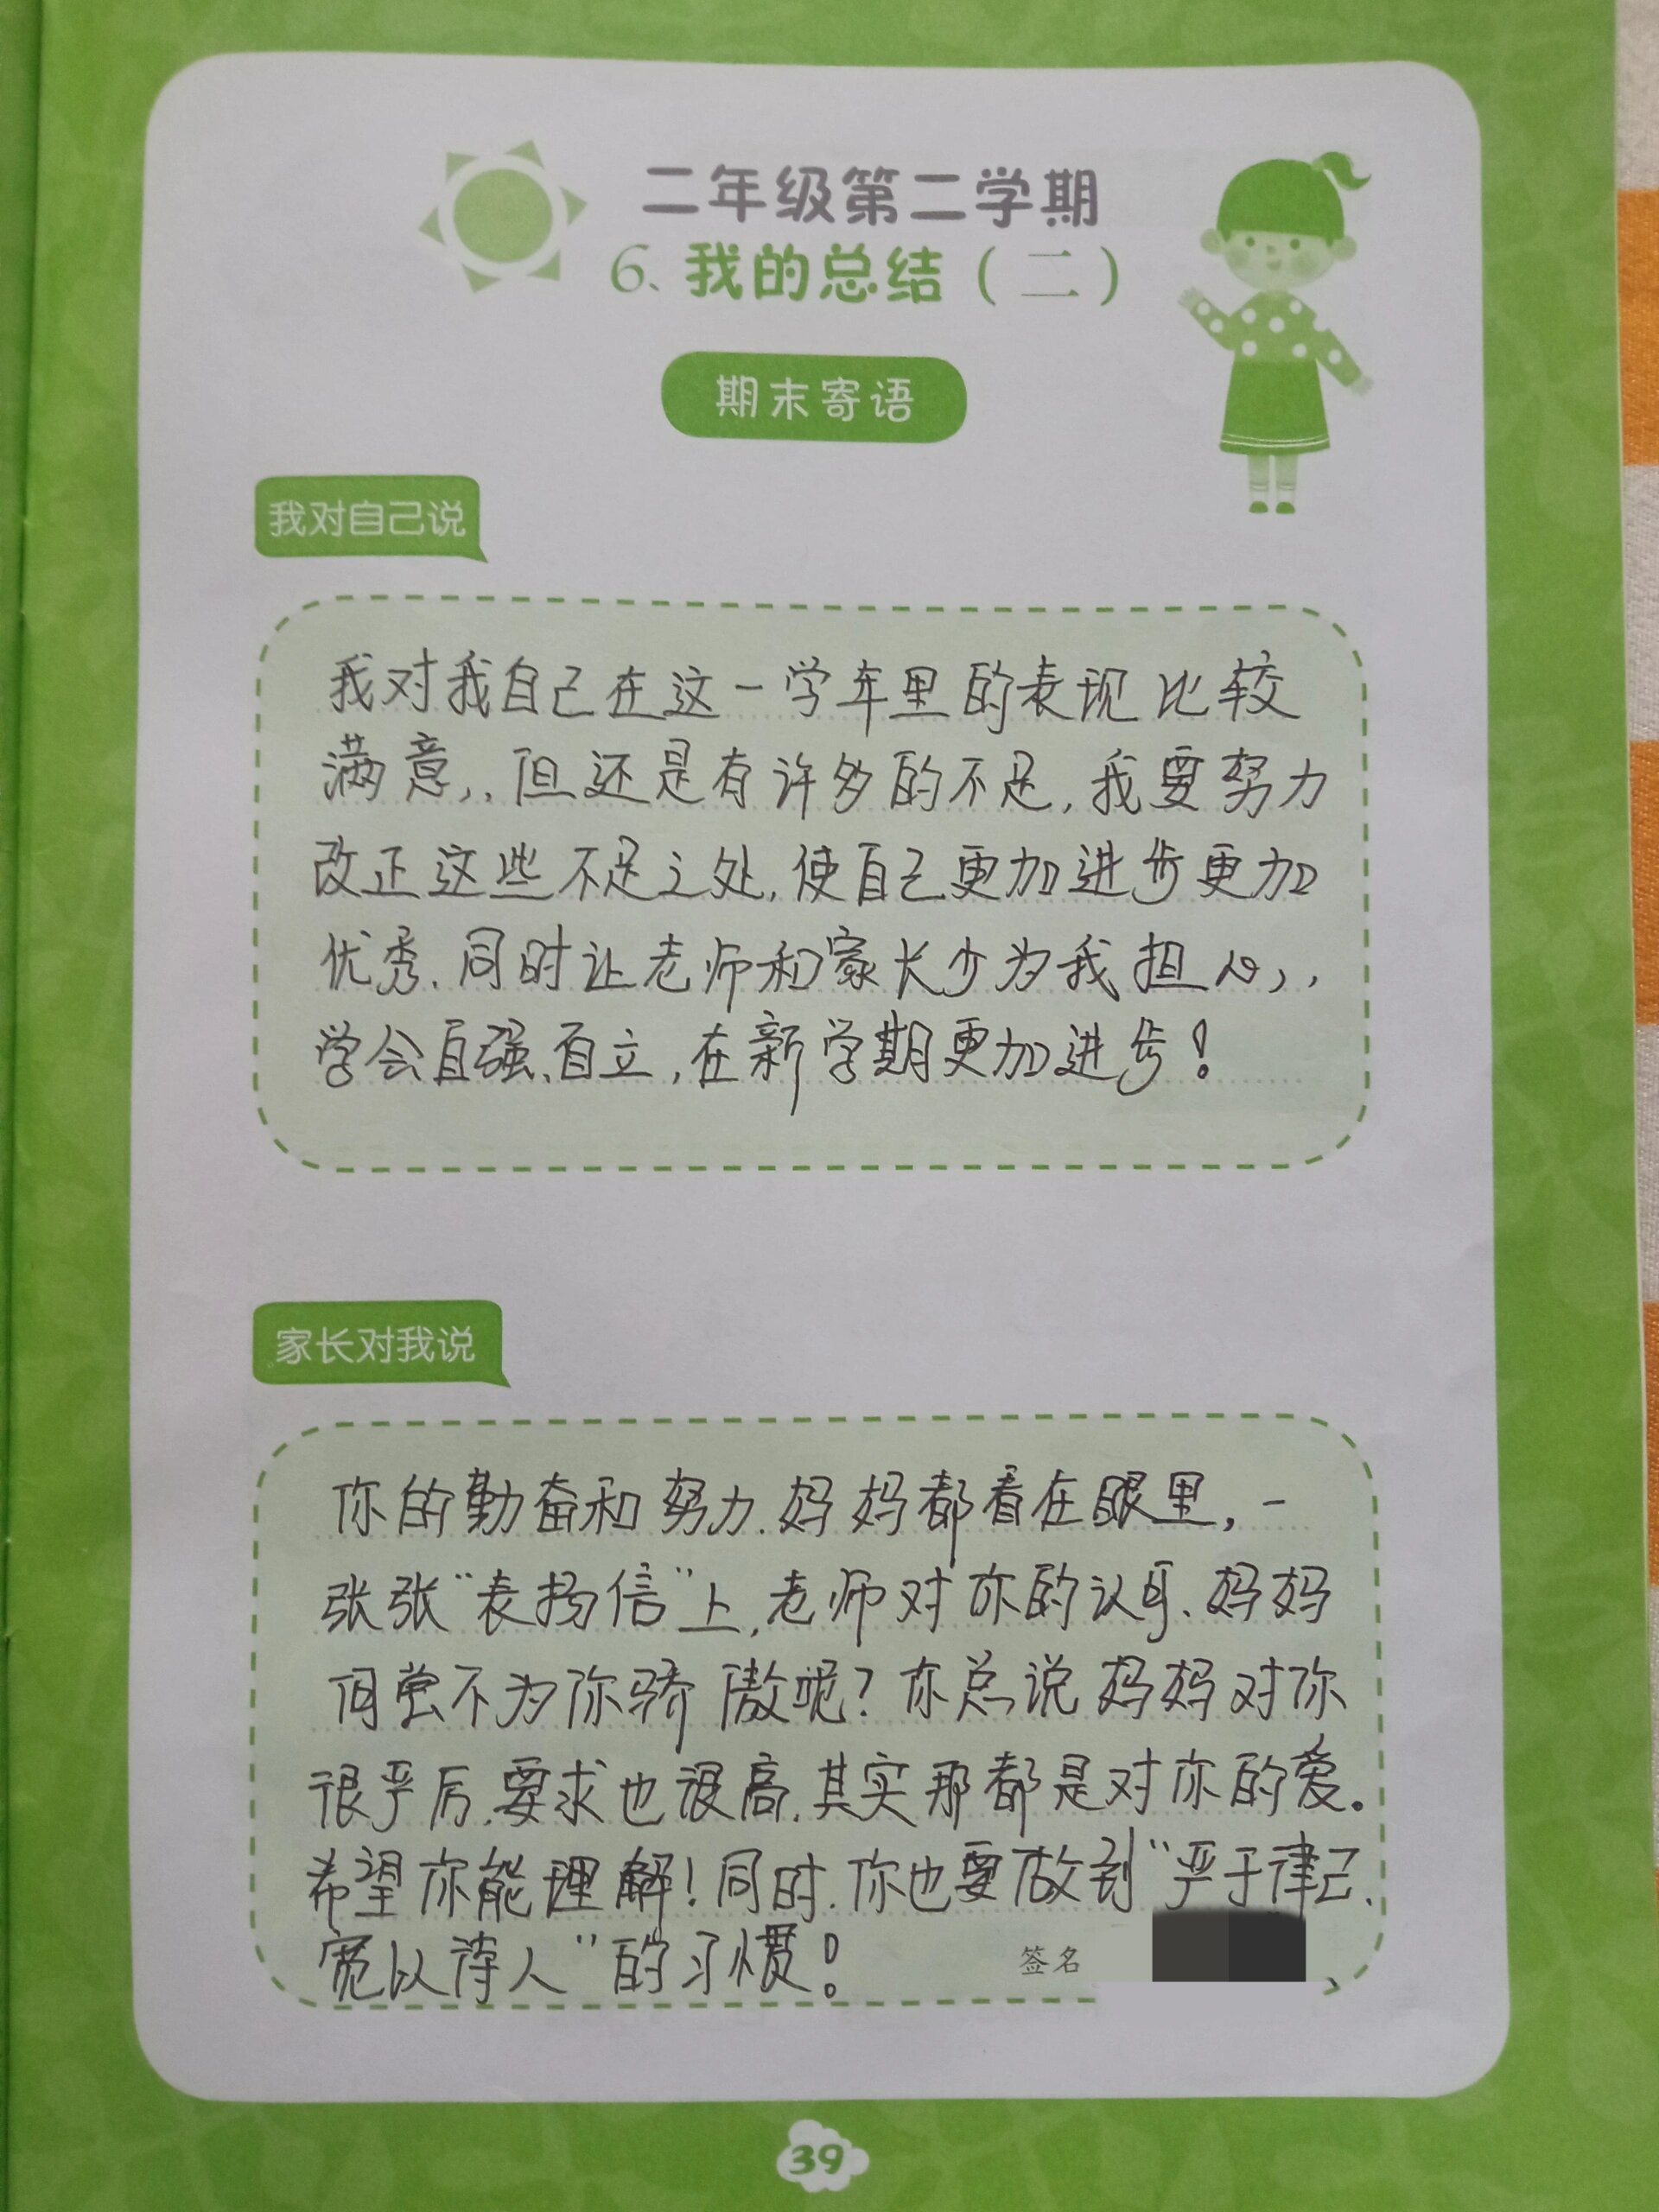 二年级第二学期
6、我的总结（二）
期末寄语
我对自己说
我对我自己在这一学年里的表现比较
满意,，但还是有许多的不足，我要努力
改正这些不足之处，使自己更加进步更加
优秀．同时让老师和家长少为我担心，，
学会自强、自立，在新学期更加进步！
家长对我说
你的勤奋和努力．妈妈都看在眼里，一
张张“表扬信”上，老师对你的认可、妈妈
何尝不为你骄傲呢？你总说妈妈对你
很严厉，要求也很高，其实那都是对你的爱。
希望你能理解！同时．你也要做到“严于律己、
宽以待人”的习惯！
签名
39